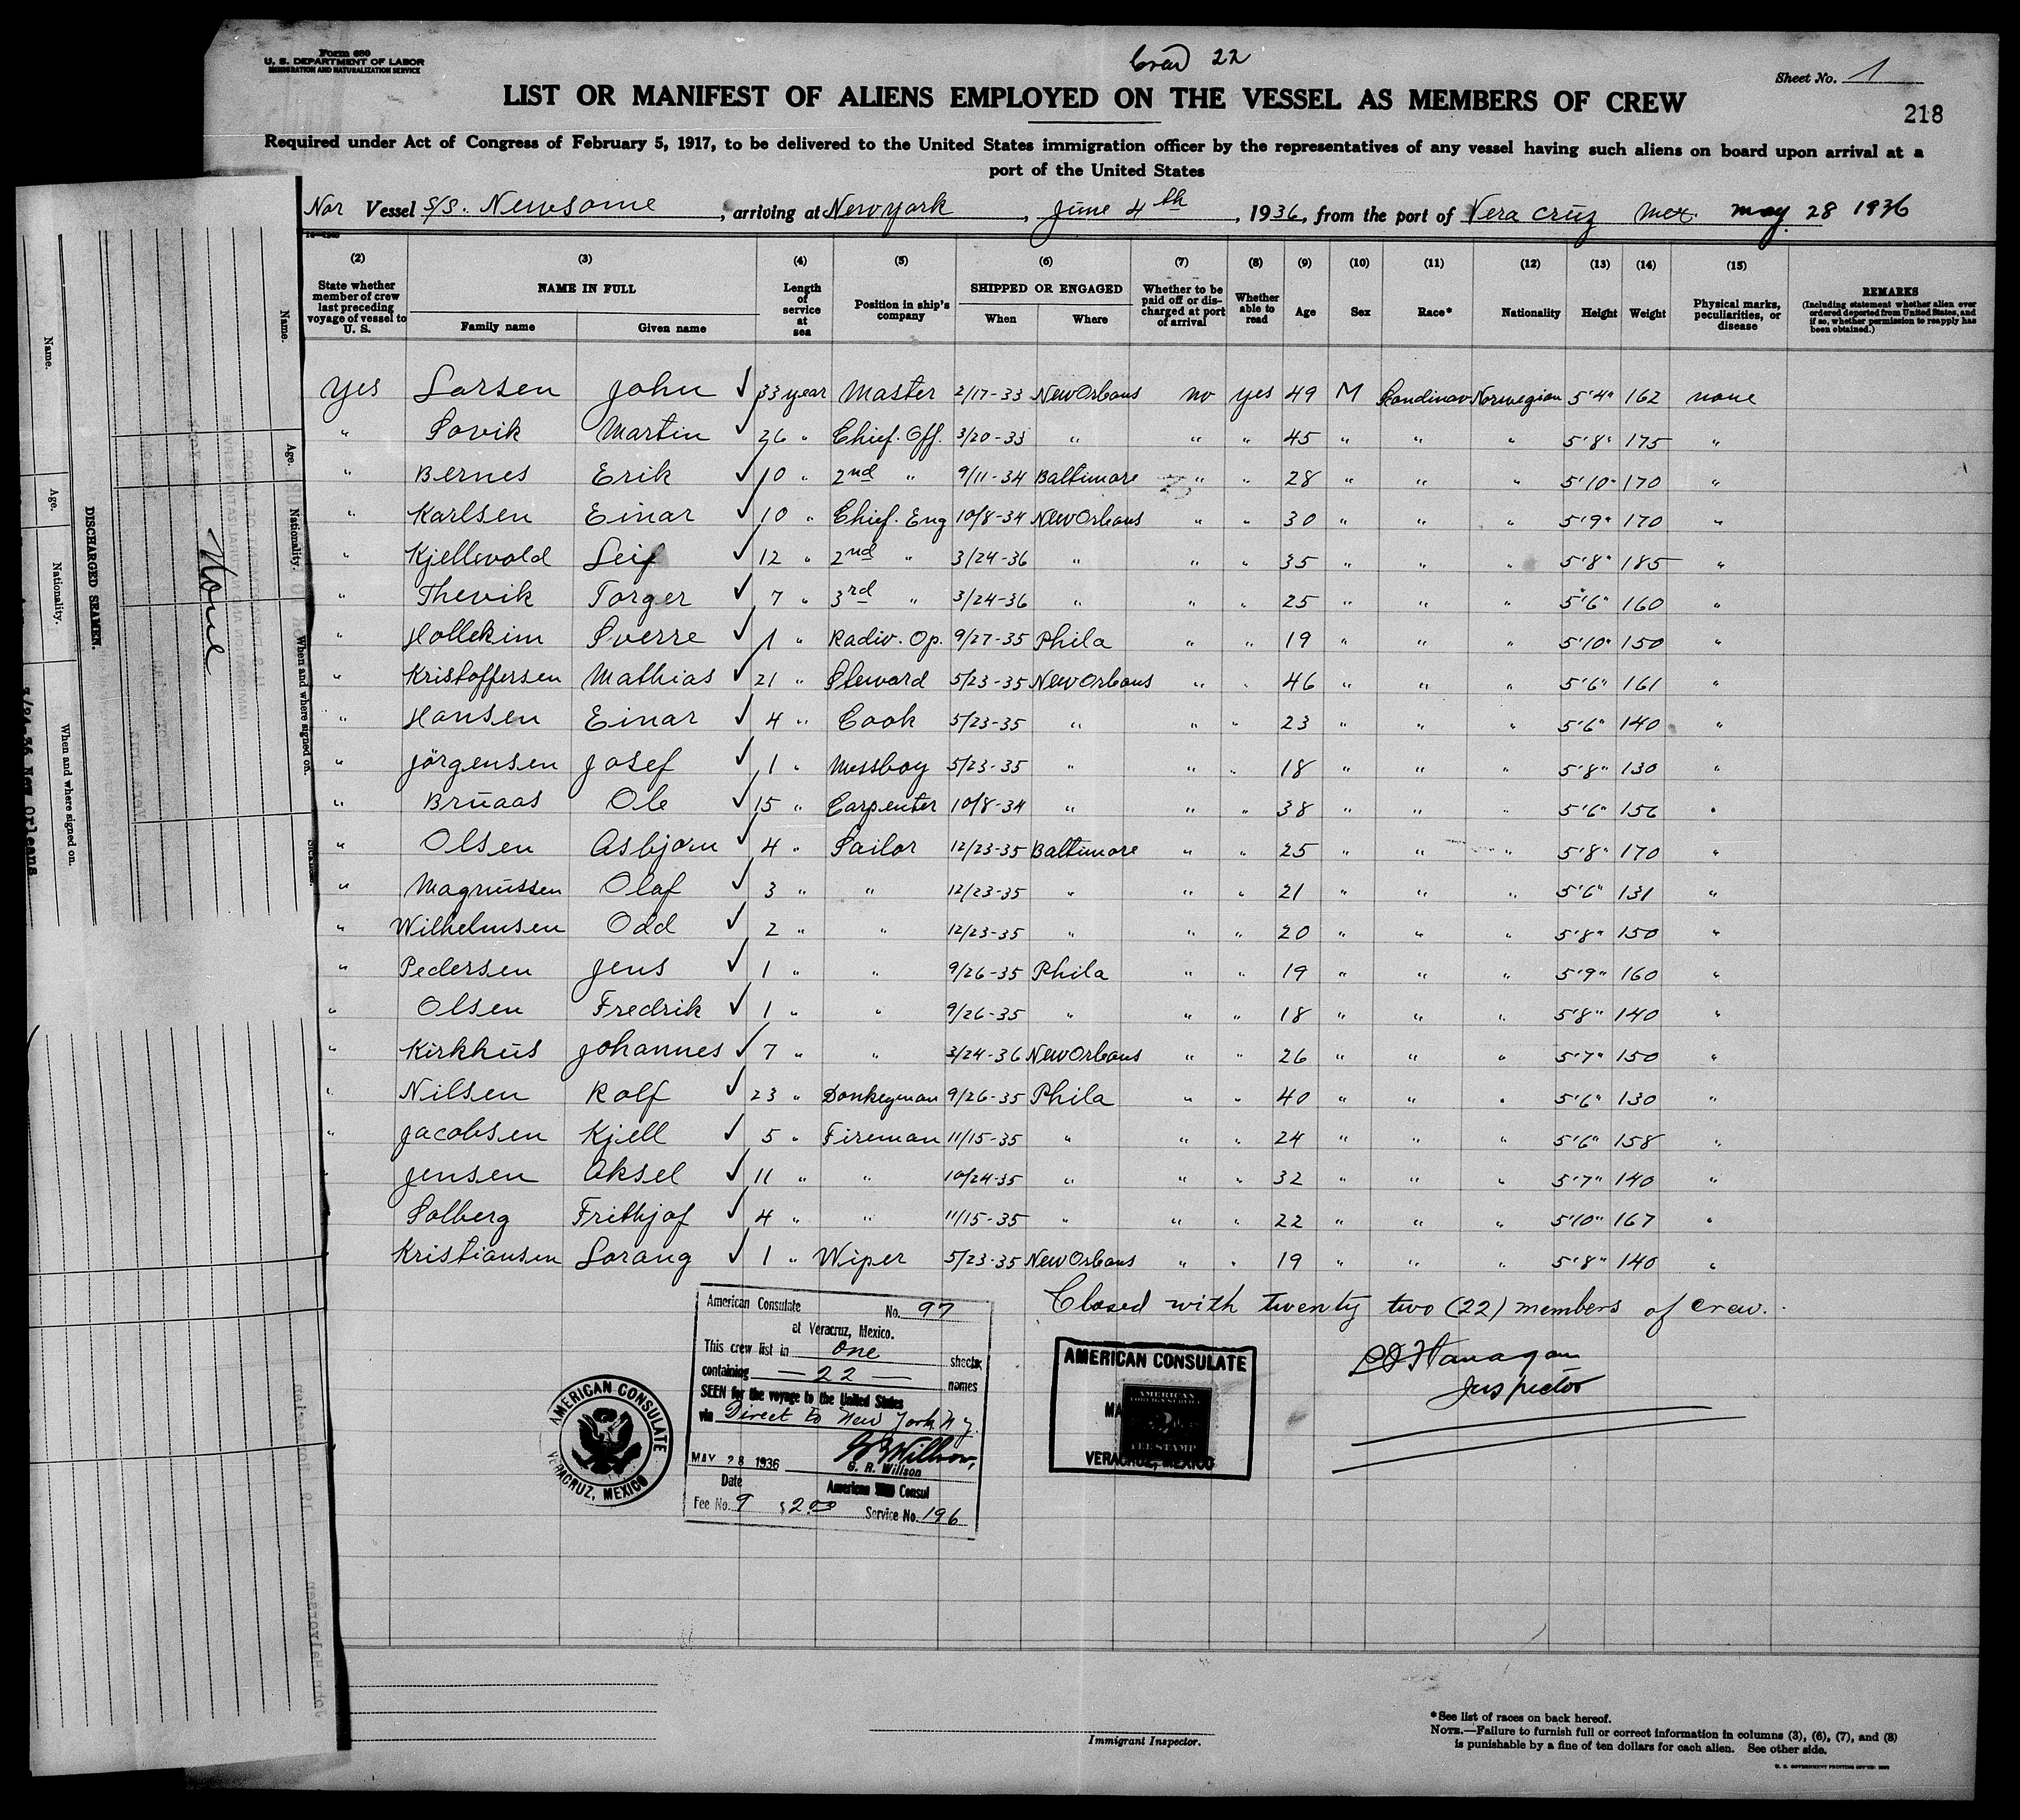 Form 680
U. S. DEPARTMENT OF LABOR
IMMIGRATION AND NATURALIZATION SERVICE
Crew 22
Sheet No. 1
LIST OR MANIFEST OF ALIENS EMPLOYED ON THE VESSEL AS MEMBERS OF CREW
218
Required under Act of Congress of February 5, 1917, to be delivered to the United States immigration officer by the representatives of any vessel having such aliens on board upon arrival at a
port of the United States
Nor Vessel S/S. Newsome, arriving at New york, June 4th, 1936, from the port of Vera Cruz Mex. May 28 1936
(2) (3) (4) (5) (6) (7) (8) (9) (10) (11) (12) (13) (14) (15)
State whether member of crew last preceding voyage of vessel to U. S. NAME IN FULL Family name Given name Length of service at sea Position in ship's company SHIPPED OR ENGAGED When Where Whether to be paid off or discharged at port of arrival Whether able to read Age Sex Race* Nationality Height Weight Physical marks, peculiarities, or disease REMARKS (Including statement whether alien ever ordered deported from United States, and if so, whether permission to reapply has been obtained.)
Yes Larsen John ✓ 33 year Master 2/17-33 New Orleans no yes 49 M Scandinav Norwegian 5'4" 162 none
" Sovik Martin ✓ 26 " Chief. Off. 3/20-33 " " " 45 " " " 5'8" 175 "
" Bernes Erik ✓ 10 " 2nd " 9/11-34 Baltimore " " 28 " " " 5'10" 170 "
" Karlsen Einar ✓ 10 " Chief. Eng 10/8-34 New Orleans " " 30 " " " 5'9" 170 "
" Kjellevold Leif ✓ 12 " 2nd " 3/24-36 " " " 35 " " " 5'8" 185 "
" Thevik Torger ✓ 7 " 3rd " 3/24-36 " " " 25 " " " 5'6" 160 "
" Hollekim Sverre ✓ 1 " Radio. Op. 9/27-35 Phila " " 19 " " " 5'10" 150 "
" Kristoffersen Mathias ✓ 21 " Steward 5/23-35 New Orleans " " 46 " " " 5'6" 161 "
" Hansen Einar ✓ 4 " Cook 5/23-35 " " " 23 " " " 5'6" 140 "
" Jörgensen Josef ✓ 1 " Messboy 5/23-35 " " " 18 " " " 5'8" 130 "
" Bruaas Ole ✓ 15 " Carpenter 10/8-34 " " " 38 " " " 5'6" 156 "
" Olsen Asbjorn ✓ 4 " Sailor 12/23-35 Baltimore " " 25 " " " 5'8" 170 "
" Magnussen Olaf ✓ 3 " " 12/23-35 " " " 21 " " " 5'6" 131 "
" Wilhelmsen Odd ✓ 2 " " 12/23-35 " " " 20 " " " 5'8" 150 "
" Pedersen Jens ✓ 1 " " 9/26-35 Phila " " 19 " " " 5'9" 160 "
" Olsen Fredrik ✓ 1 " " 9/26-35 " " " 18 " " " 5'8" 140 "
" Kirkhus Johannes ✓ 7 " " 3/24-36 New Orleans " " 26 " " " 5'7" 150 "
" Nilsen Rolf ✓ 23 " Donkeyman 9/26-35 Phila " " 40 " " " 5'6" 130 "
" Jacobsen Kjell ✓ 5 " Fireman 11/15-35 " " " 24 " " " 5'6" 158 "
" Jensen Aksel ✓ 11 " " 10/24-35 " " " 32 " " " 5'7" 140 "
Solberg Frithjof ✓ 4 " " 11/15-35 " " " 22 " " " 5'10" 167 "
Kristiansen Lorang ✓ 1 " Wiper 5/23-35 New Orleans " " 19 " " " 5'8" 140 "
Closed with twenty two (22) members of crew.
Flanagan
Inspector
American Consulate No. 97
at Veracruz, Mexico.
This crew list in One sheets
containing — 22 — names
SEEN for the voyage to the United States
via Direct to New York N.Y.
MAY 28 1936 G R Willson
G. R. Willson
Date American Consul
Fee No. 9 $2.00 Service No. 196
AMERICAN CONSULATE
VERACRUZ, MEXICO
AMERICAN CONSULATE
AMERICAN
FOREIGN SERVICE
2
FEE STAMP
VERACRUZ, MEXICO
Immigrant Inspector.
*See list of races on back hereof.
NOTE.—Failure to furnish full or correct information in columns (3), (6), (7), and (8)
is punishable by a fine of ten dollars for each alien. See other side.
U. S. GOVERNMENT PRINTING OFFICE
Name. Age. Nationality. When and where signed on.
None
DISCHARGED SEAMEN.
Name. Age. Nationality. When and where signed on.
New Orleans